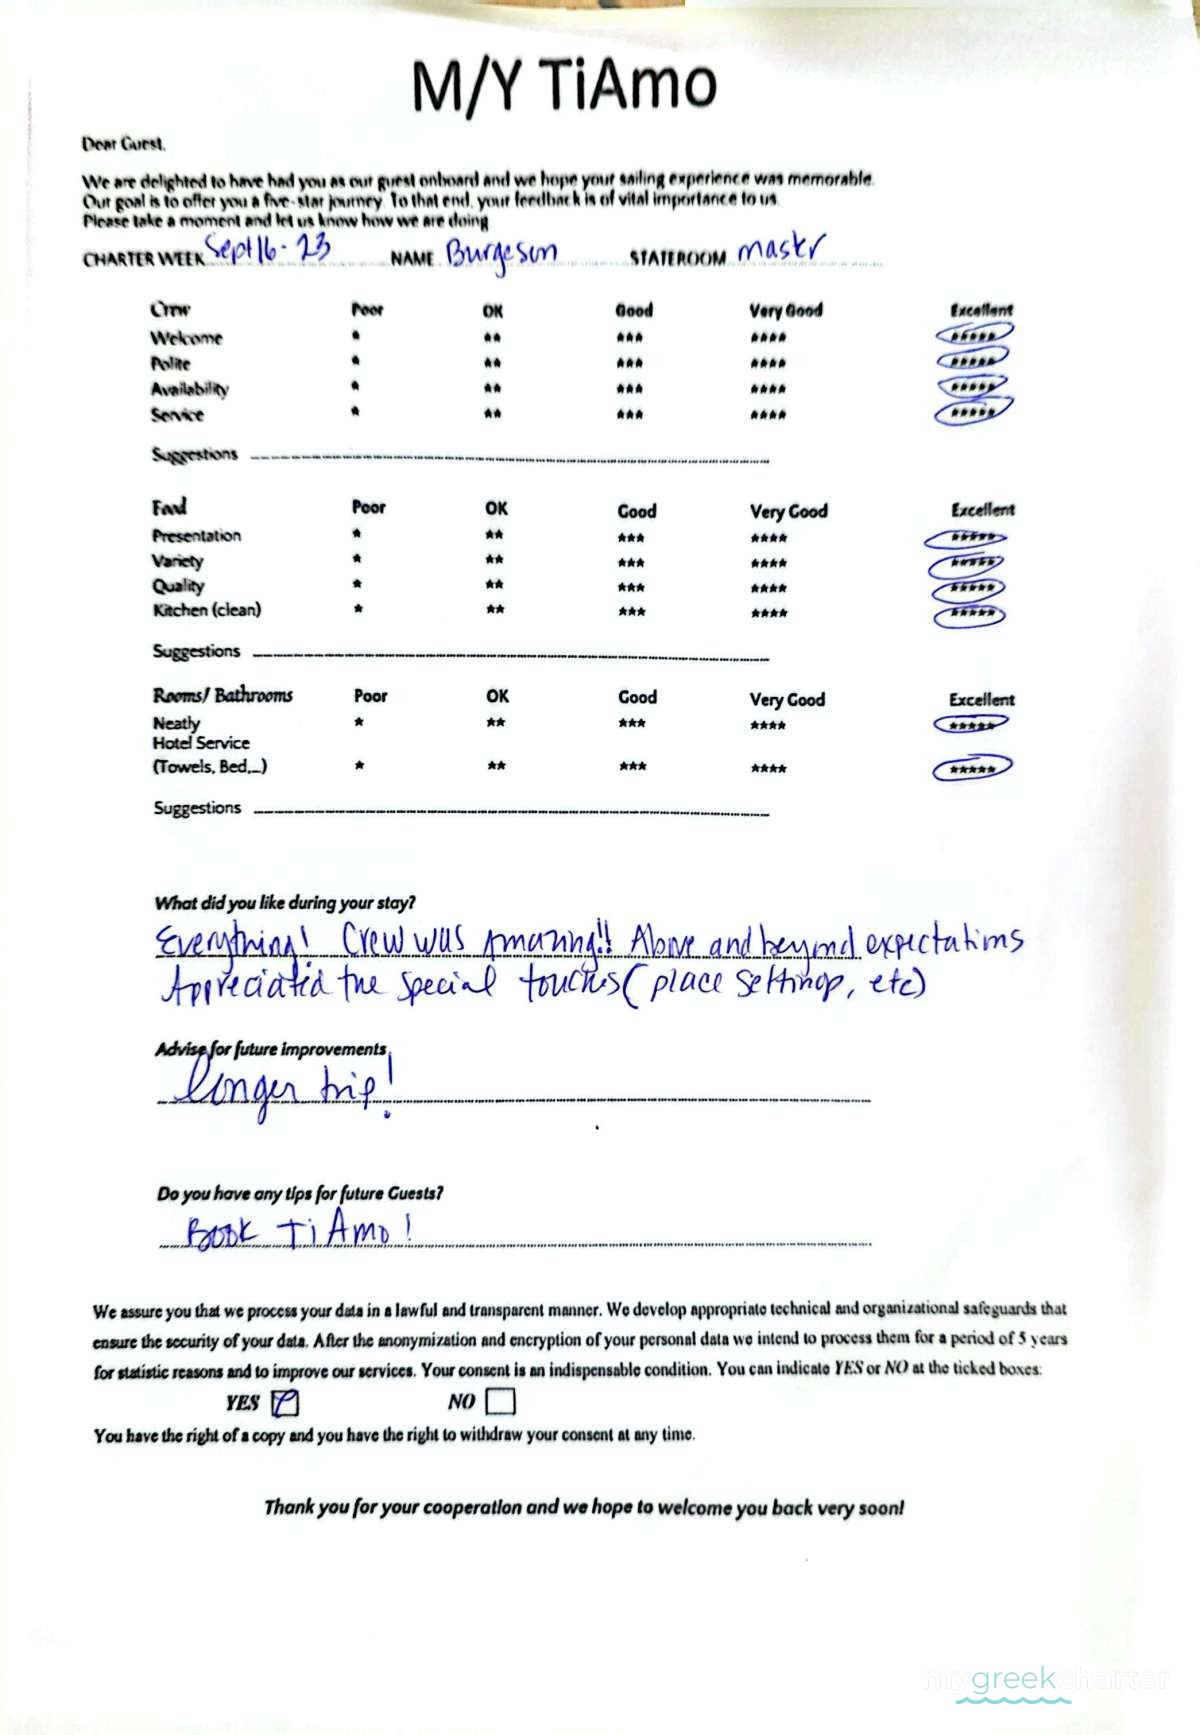 M/Y TiAmo
Dear Guest,
We are delighted to have had you as our guest onboard and we hope your sailing experience was memorable.
Our goal is to offer you a five-star journey. To that end, your feedback is of vital importance to us.
Please take a moment and let us know how we are doing
CHARTER WEEK Sept 16-23 NAME Burgeson STATEROOM master
Crew Poor OK Good Very Good Excellent
Welcome * ** *** **** *****
Polite * ** *** **** *****
Availability * ** *** **** *****
Service * ** *** **** *****
Suggestions
Food Poor OK Good Very Good Excellent
Presentation * ** *** **** *****
Variety * ** *** **** *****
Quality * ** *** **** *****
Kitchen (clean) * ** *** **** *****
Suggestions
Rooms/ Bathrooms Poor OK Good Very Good Excellent
Neatly * ** *** **** *****
Hotel Service
(Towels, Bed,...) * ** *** **** *****
Suggestions
What did you like during your stay?
Everything! Crew was Amazing!! Above and beyond expectations
Appreciated the special touches (place settings, etc)
Advise for future improvements
longer trip!
Do you have any tips for future Guests?
Book TiAmo!
We assure you that we process your data in a lawful and transparent manner. We develop appropriate technical and organizational safeguards that
ensure the security of your data. After the anonymization and encryption of your personal data we intend to process them for a period of 5 years
for statistic reasons and to improve our services. Your consent is an indispensable condition. You can indicate YES or NO at the ticked boxes:
YES NO
You have the right of a copy and you have the right to withdraw your consent at any time.
Thank you for your cooperation and we hope to welcome you back very soon!
mygreekcharter